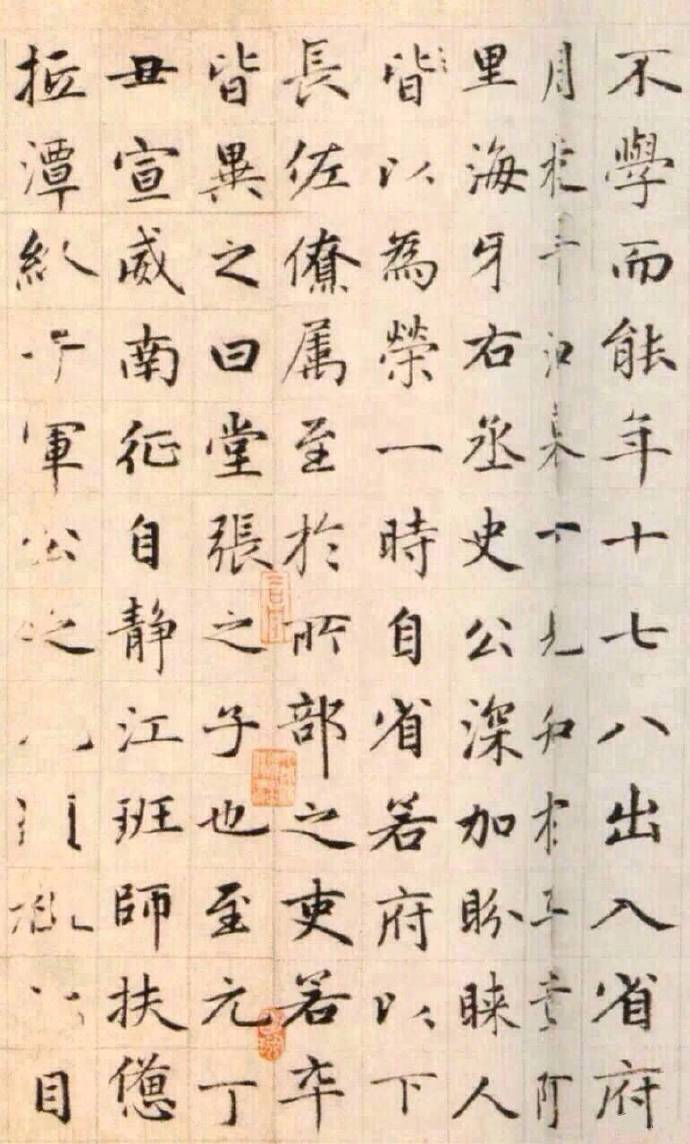 不學而能年十七八出入省府
月江東下和章阿
里海牙右丞史公深加盼睞人
皆以為榮一時自省若府以下
長佐僚属至於所部之吏若卒
皆異之曰堂張之子也至元丁
丑宣威南征自静江班師扶憊
抵潭軍公之以目